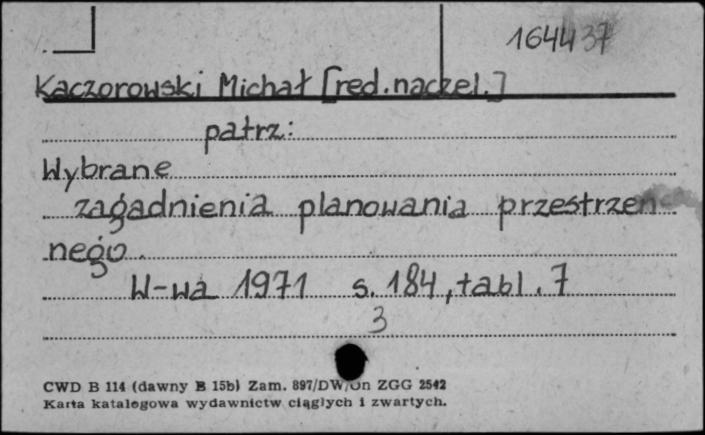 164437
Kaczorowski Michał [red.naczel.]
patrz:
Wybrane
zagadnienia planowania przestrzen
nego.
W-wa 1971 s. 184, tabl. 7
3
CWD B 114 (dawny B 15b) Zam. 897/DW/Un ZGG 2542
Karta katalogowa wydawnictw ciągłych i zwartych.